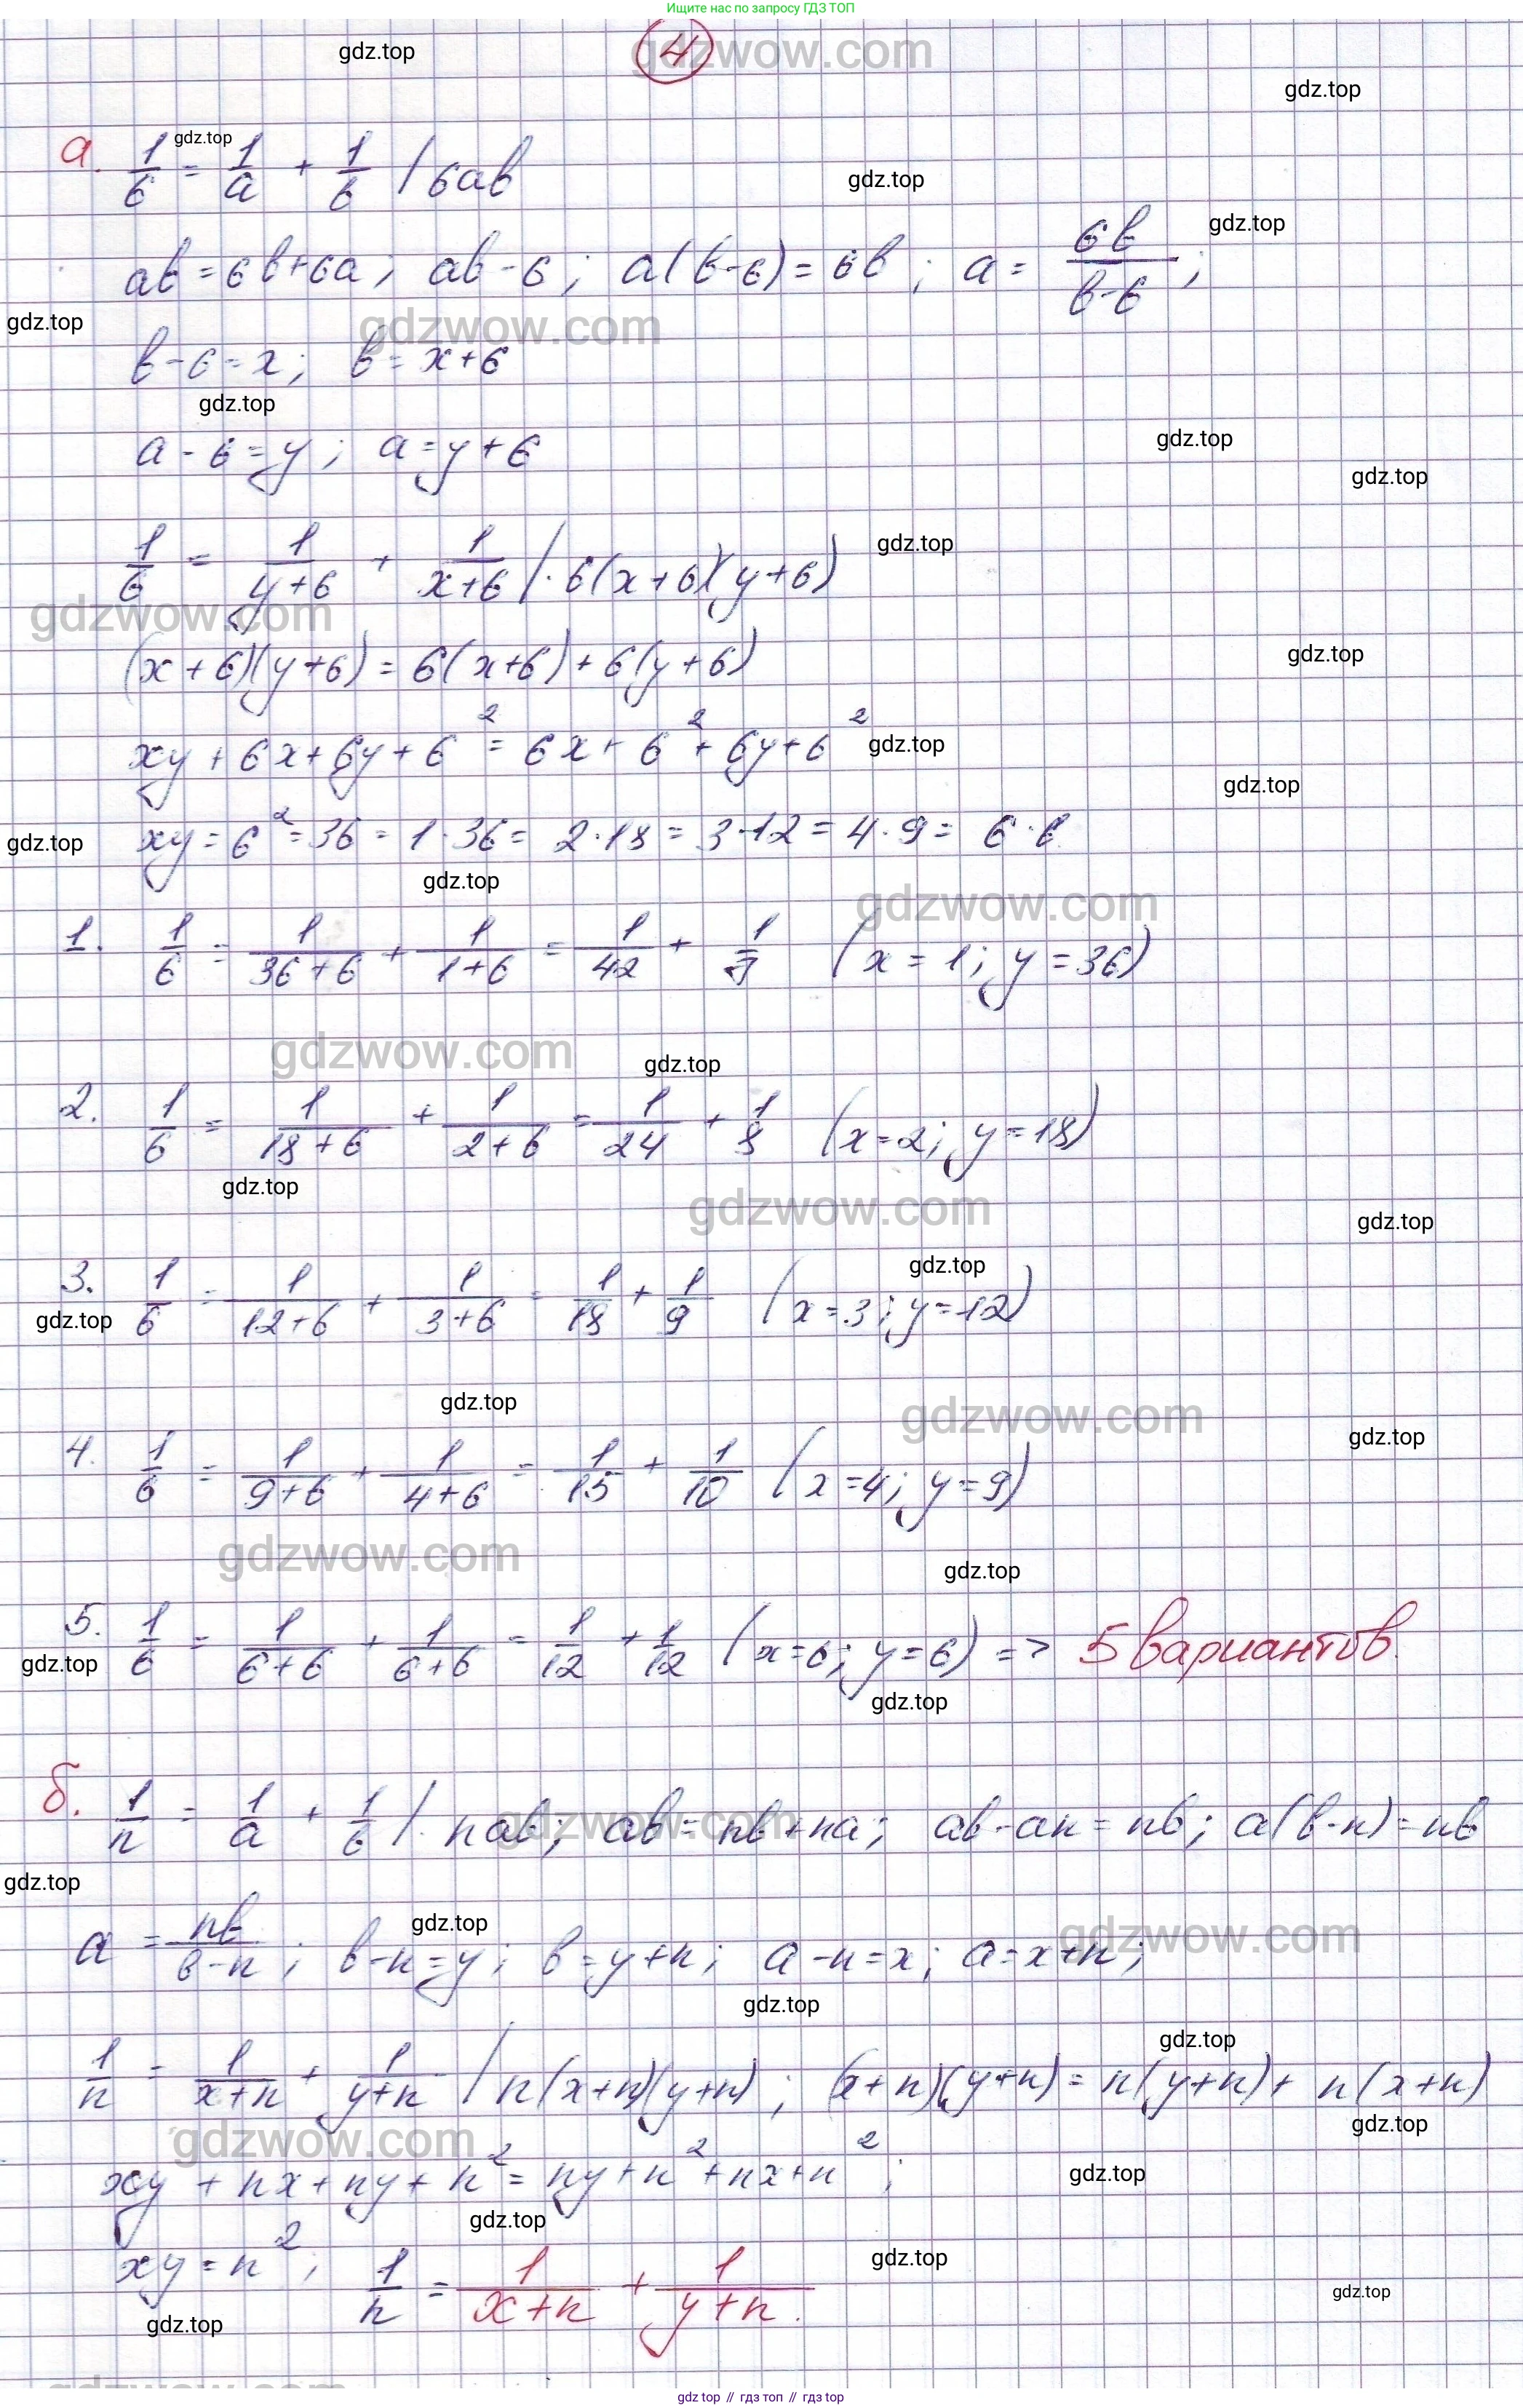 Ищите нас по запросу ГДЗ ТОП
4
а. 1/6 = 1/a + 1/в | 6ав
ав = 6в+6а; ав-6; а(в-6) = 6в; а = 6в/(в-6);
в-6=x; в=x+6
а-6=y; а=y+6
1/6 = 1/(y+6) + 1/(x+6) |·6(x+6)(y+6)
(x+6)(y+6) = 6(x+6)+6(y+6)
xy+6x+6y+6² = 6x+6²+6y+6²
xy = 6² = 36 = 1·36 = 2·18 = 3·12 = 4·9 = 6·6
1. 1/6 = 1/(36+6) + 1/(1+6) = 1/42 + 1/7 (x=1; y=36)
2. 1/6 = 1/(18+6) + 1/(2+6) = 1/24 + 1/8 (x=2; y=18)
3. 1/6 = 1/(12+6) + 1/(3+6) = 1/18 + 1/9 (x=3; y=12)
4. 1/6 = 1/(9+6) + 1/(4+6) = 1/15 + 1/10 (x=4; y=9)
5. 1/6 = 1/(6+6) + 1/(6+6) = 1/12 + 1/12 (x=6; y=6) => 5 вариантов.
б. 1/n = 1/a + 1/в |· nав; ав = nв+nа; ав-аn = nв; а(в-n) = nв
а = nв/(в-n); в-n=y; в=y+n; а-n=x; а=x+n;
1/n = 1/(x+n) + 1/(y+n) | n(x+n)(y+n); (x+n)(y+n) = n(y+n)+ n(x+n)
xy + nx+ny+n² = ny+n²+nx+n²;
xy = n²; 1/n = 1/(x+n) + 1/(y+n).
gdz.top // гдз топ // гдз.top